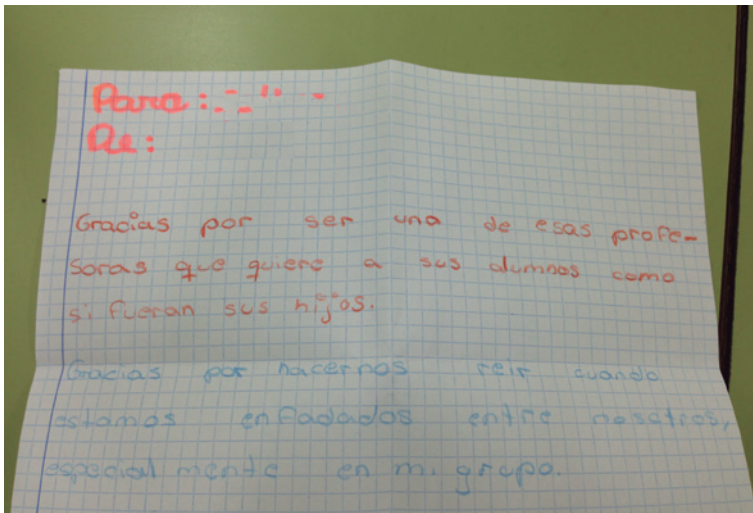 Para:
De:
Gracias por ser una de esas profe-
soras que quiere a sus alumnos como
si fueran sus hijos.
Gracias por hacernos reir cuando
estamos enfadados entre nosotros,
especialmente en mi grupo.